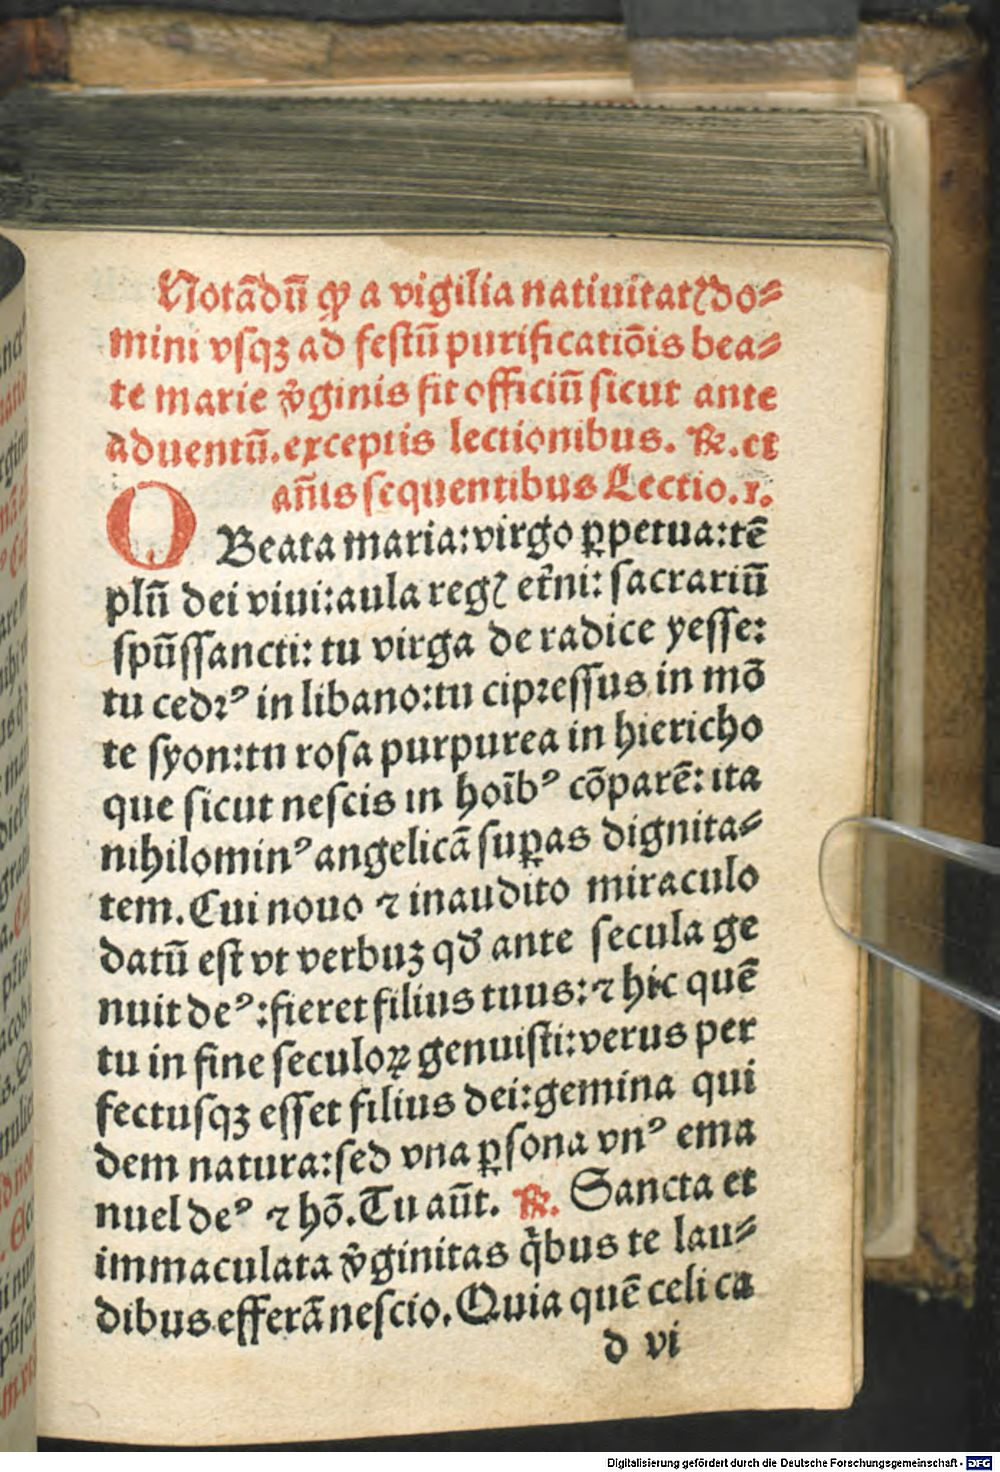 Notãdũ ꝙ a vigilia natiuitatꝭ do⸗
mini vsqꝫ ad festũ purificatiõis bea⸗
te marie v̾ginis fit officiũ sicut ante
aduentũ. exceptis lectionibus. ℟. et
an̄is sequentibus Lectio. 1.
O Beata maria: virgo ꝑpetua: tẽ
plũ dei viui: aula regꝭ et̾ni: sacrariũ
spũssancti: tu virga de radice yesse:
tu cedrꝰ in libano: tu cipressus in mõ
te syon: tu rosa purpurea in hiericho
que sicut nescis in hoĩbꝰ cõparẽ: ita
nihilominꝰ angelicã suꝑas dignita⸗
tem. Cui nouo ⁊ inaudito miraculo
datũ est vt verbuꝫ qđ ante secula ge
nuit deꝰ: fieret filius tuus: ⁊ hic quẽ
tu in fine seculoꝝ genuisti: verus per
fectusqꝫ esset filius dei: gemina qui
dem natura: sed vna ꝑsona vnꝰ ema
nuel deꝰ ⁊ hõ. Tu aũt. ℟. Sancta et
immaculata v̾ginitas qͥbus te lau⸗
dibus efferã nescio. Quia quẽ celi ca
d vi
Digitalisierung gefördert durch die Deutsche Forschungsgemeinschaft - DFG